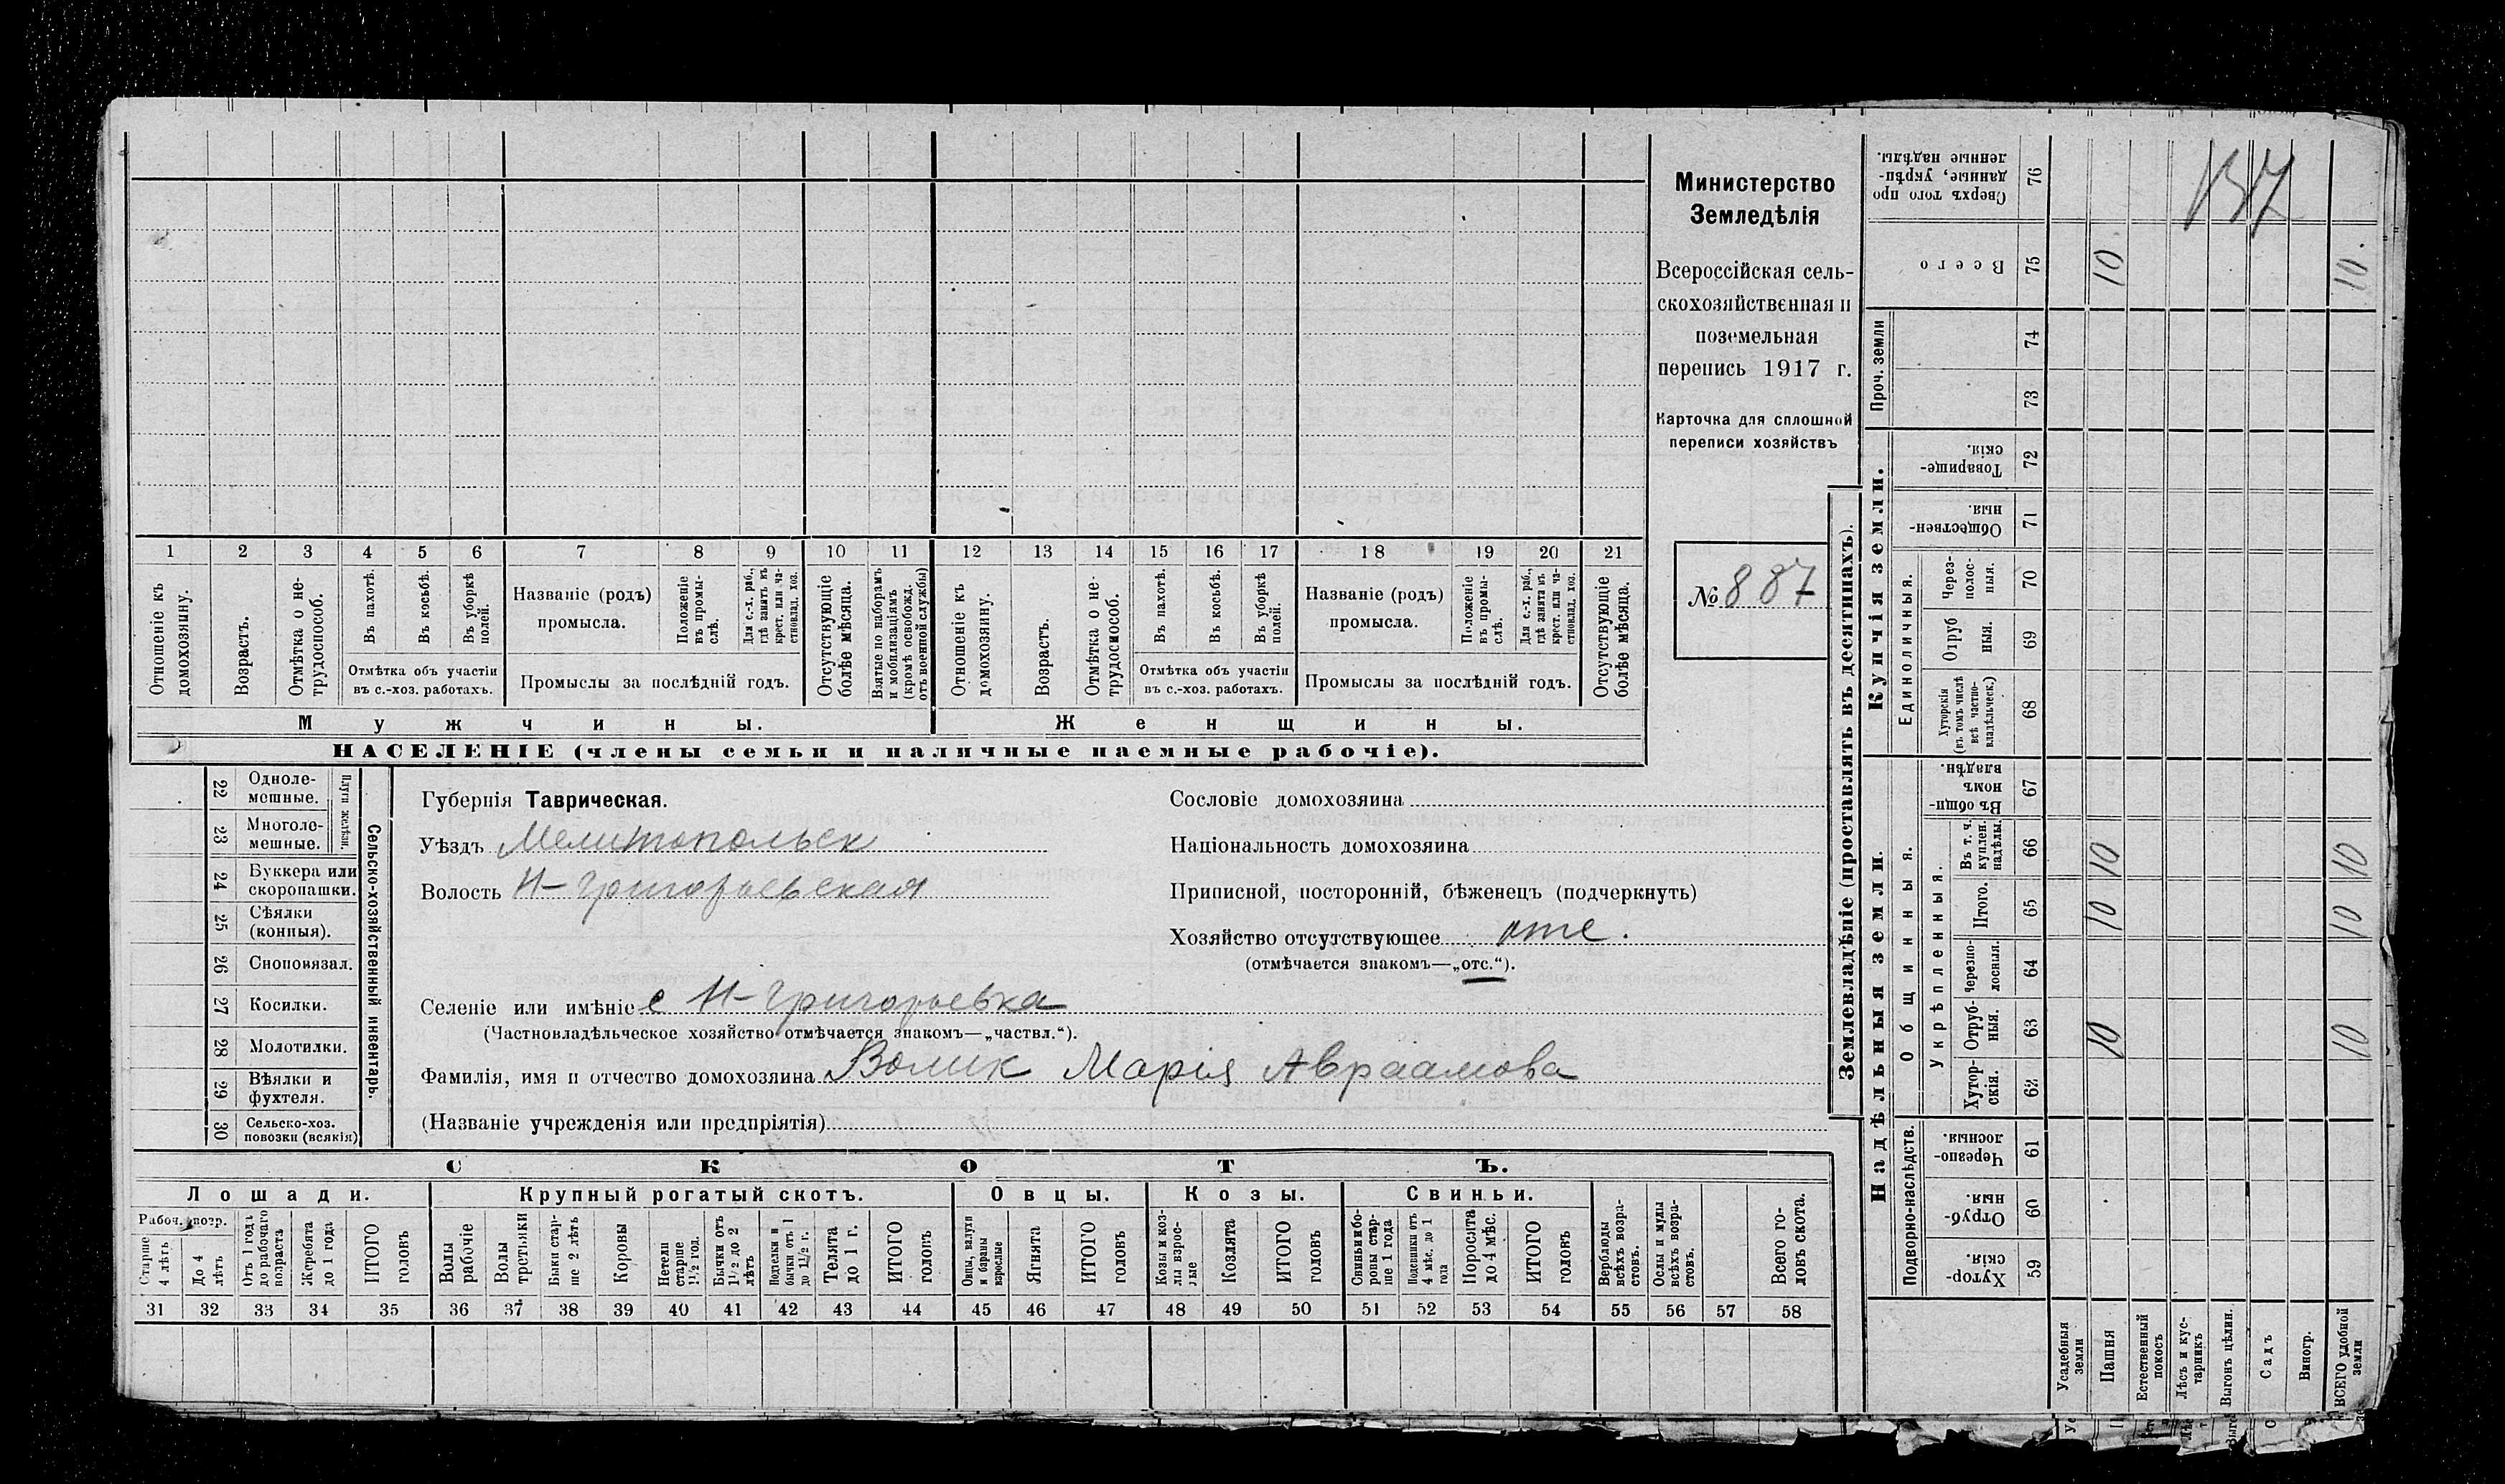 Министерство
Земледѣлія
Всероссійская сель-
скохозяйственная и
поземельная
перепись 1917 г.
Карточка для сплошной
переписи хозяйствъ
№ 887
1 2 3 4 5 6 7 8 9 10 11 12 13 14 15 16 17 18 19 20 21
Отношеніе къ домохозяину.
Возрастъ.
Отмѣтка о не-трудоспособ.
Въ пахотѣ.
Въ косьбѣ.
Въ уборкѣ полей.
Отмѣтка объ участіи
въ с.-хоз. работахъ.
Названіе (родъ)
промысла.
Положеніе въ промы-слѣ.
Для с.-х. раб., гдѣ занятъ въ крест. или ча-стновлад. хоз.
Промыслы за послѣдній годъ.
Отсутствующіе болѣе мѣсяца.
Взятые по наборамъ и мобилизаціямъ (кромѣ освобожд. отъ военной службы)
Отношеніе къ домохозяину.
Возрастъ.
Отмѣтка о не-трудоспособ.
Въ пахотѣ.
Въ косьбѣ.
Въ уборкѣ полей.
Отмѣтка объ участіи
въ с.-хоз. работахъ.
Названіе (родъ)
промысла.
Положеніе въ промы-слѣ.
Для с.-х. раб., гдѣ занята въ крест. или ча-стновлад. хоз.
Промыслы за послѣдній годъ.
Отсутствующіе болѣе мѣсяца.
Мужчины.
Женщины.
НАСЕЛЕНІЕ (члены семьи и наличные наемные рабочіе).
22 Одноле-мешные.
23 Многоле-мешные.
Плуги желѣзн.
24 Буккера или скоропашки.
25 Сѣялки (конныя).
26 Сноповязал.
27 Косилки.
28 Молотилки.
29 Вѣялки и фухтеля.
30 Сельско-хоз. повозки (всякія)
Сельско-хозяйственный инвентарь.
Губернія Таврическая.
Уѣздъ Мелитопольск
Волость Н-Григорьевская
Сословіе домохозяина
Національность домохозяина
Приписной, посторонній, бѣженецъ (подчеркнуть)
Хозяйство отсутствующее отс.
(отмѣчается знакомъ—„отс.“).
Селеніе или имѣніе с Н-Григорьевка
(Частновладѣльческое хозяйство отмѣчается знакомъ—„частвл.“).
Фамилія, имя и отчество домохозяина Волик Марія Авраамова
(Названіе учрежденія или предпріятія)
СКОТЪ.
Лошади. Крупный рогатый скотъ. Овцы. Козы. Свиньи.
Рабоч. возр.
Старше 4 лѣтъ
До 4 лѣтъ
Отъ 1 года до рабочаго возраста
Жеребята до 1 года
ИТОГО головъ
Волы рабочіе
Волы третьяки
Быки стар-ше 2 лѣтъ
Коровы
Нетели старше 1½ год.
Бычки отъ 1½ до 2 лѣтъ
Подтелки и бычки отъ 1 до 1½ г.
Телята до 1 г.
ИТОГО головъ
Овцы, валухи и бараны взрослые
Ягнята
ИТОГО головъ
Козы и коз-лы взрос-лые
Козлята
ИТОГО головъ
Свиньи и бо-ровы стар-ше 1 года
Подсвинки отъ 4 мѣс. до 1 года
Поросята до 4 мѣс.
ИТОГО головъ
Верблюды всѣхъ возра-стовъ.
Ослы и мулы всѣхъ возра-стовъ.
Всего го-ловъ скота.
31 32 33 34 35 36 37 38 39 40 41 42 43 44 45 46 47 48 49 50 51 52 53 54 55 56 57 58
Землевладѣніе (проставлять въ десятинахъ).
Надѣльныя земли.
Купчія земли.
Проч. земли
Подворно-наслѣдств.
Общинныя.
Укрѣпленныя.
Единоличныя.
Хутор-скія. 59
Отруб-ныя. 60
Черезпо-лосныя. 61
Хутор-скія. 62
Отруб-ныя. 63 10 10
Черезпо-лосныя. 64
Итого. 65 10 10
Въ т. ч. куплен. надѣлы. 66 10 10
Въ общи-номъ владѣн. 67
Хуторскія (въ томъ числѣ всѣ частно-владѣльческ.) 68
Отруб ныя. 69
Через-полос-ныя. 70
Обществен-ныя. 71
Товарище-скія. 72
73
74
Всего 75 10 10.
Сверхъ того про данные, укрѣп-ленные надѣлы. 76
Усадебныя земли
Пашня
Естественный покосъ
Лѣсъ и кус-тарникъ
Выгонъ цѣлин.
Садъ
Виногр.
ВСЕГО удобной земли